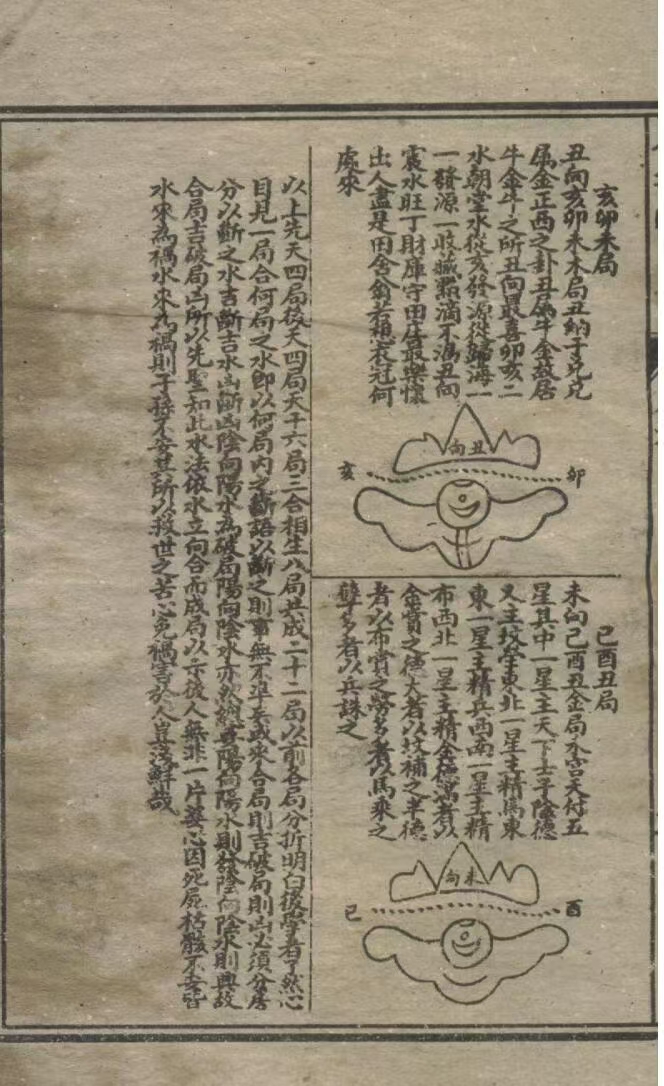 亥卯未局
丑向亥卯未木局丑納于兌兌
屬金正西之卦丑屬牛金故居
牛金牛之所丑向最喜卯亥二
水朝堂水從亥發源從歸海一
一發源一收藏點滴不漏丑向
震水旺丁財庫守田庄最樂懷
出人盡是田舍翁若想衣冠何
處來
丑向
亥
卯
巳酉丑局
未向巳酉丑金局水宮天付五
星其中一星主天下士子陰德
又主坟塋東北一星主精馬東
東一星主精兵西南一星主精
布西北一星主精金德寓者以
金賞之德大者以坟補之羊德
者以布賞之勞多者以馬乘之
孽多者以兵誅之
未向
巳
酉
以上先天四局後天四局天干六局三合相生八局共成二十二局以前各局分折明白後學者了然心
目見一局合何局之水即以何局內之斷語以斷之則事無不準矣或來合局則吉破局則凶必須分房
分以斷之水吉斷吉水凶斷凶陰向陽水為破局陽向陰水亦然純陽向陽水則發陰向陰水則興故
合局吉破局凶所以先聖知此水法依水立向合而成局以示後人無非一片婆心因死屍枯骸不幸皆
水來為禍水來為禍則子孫不安其所以救世之苦心免禍害於人豈淺鮮哉